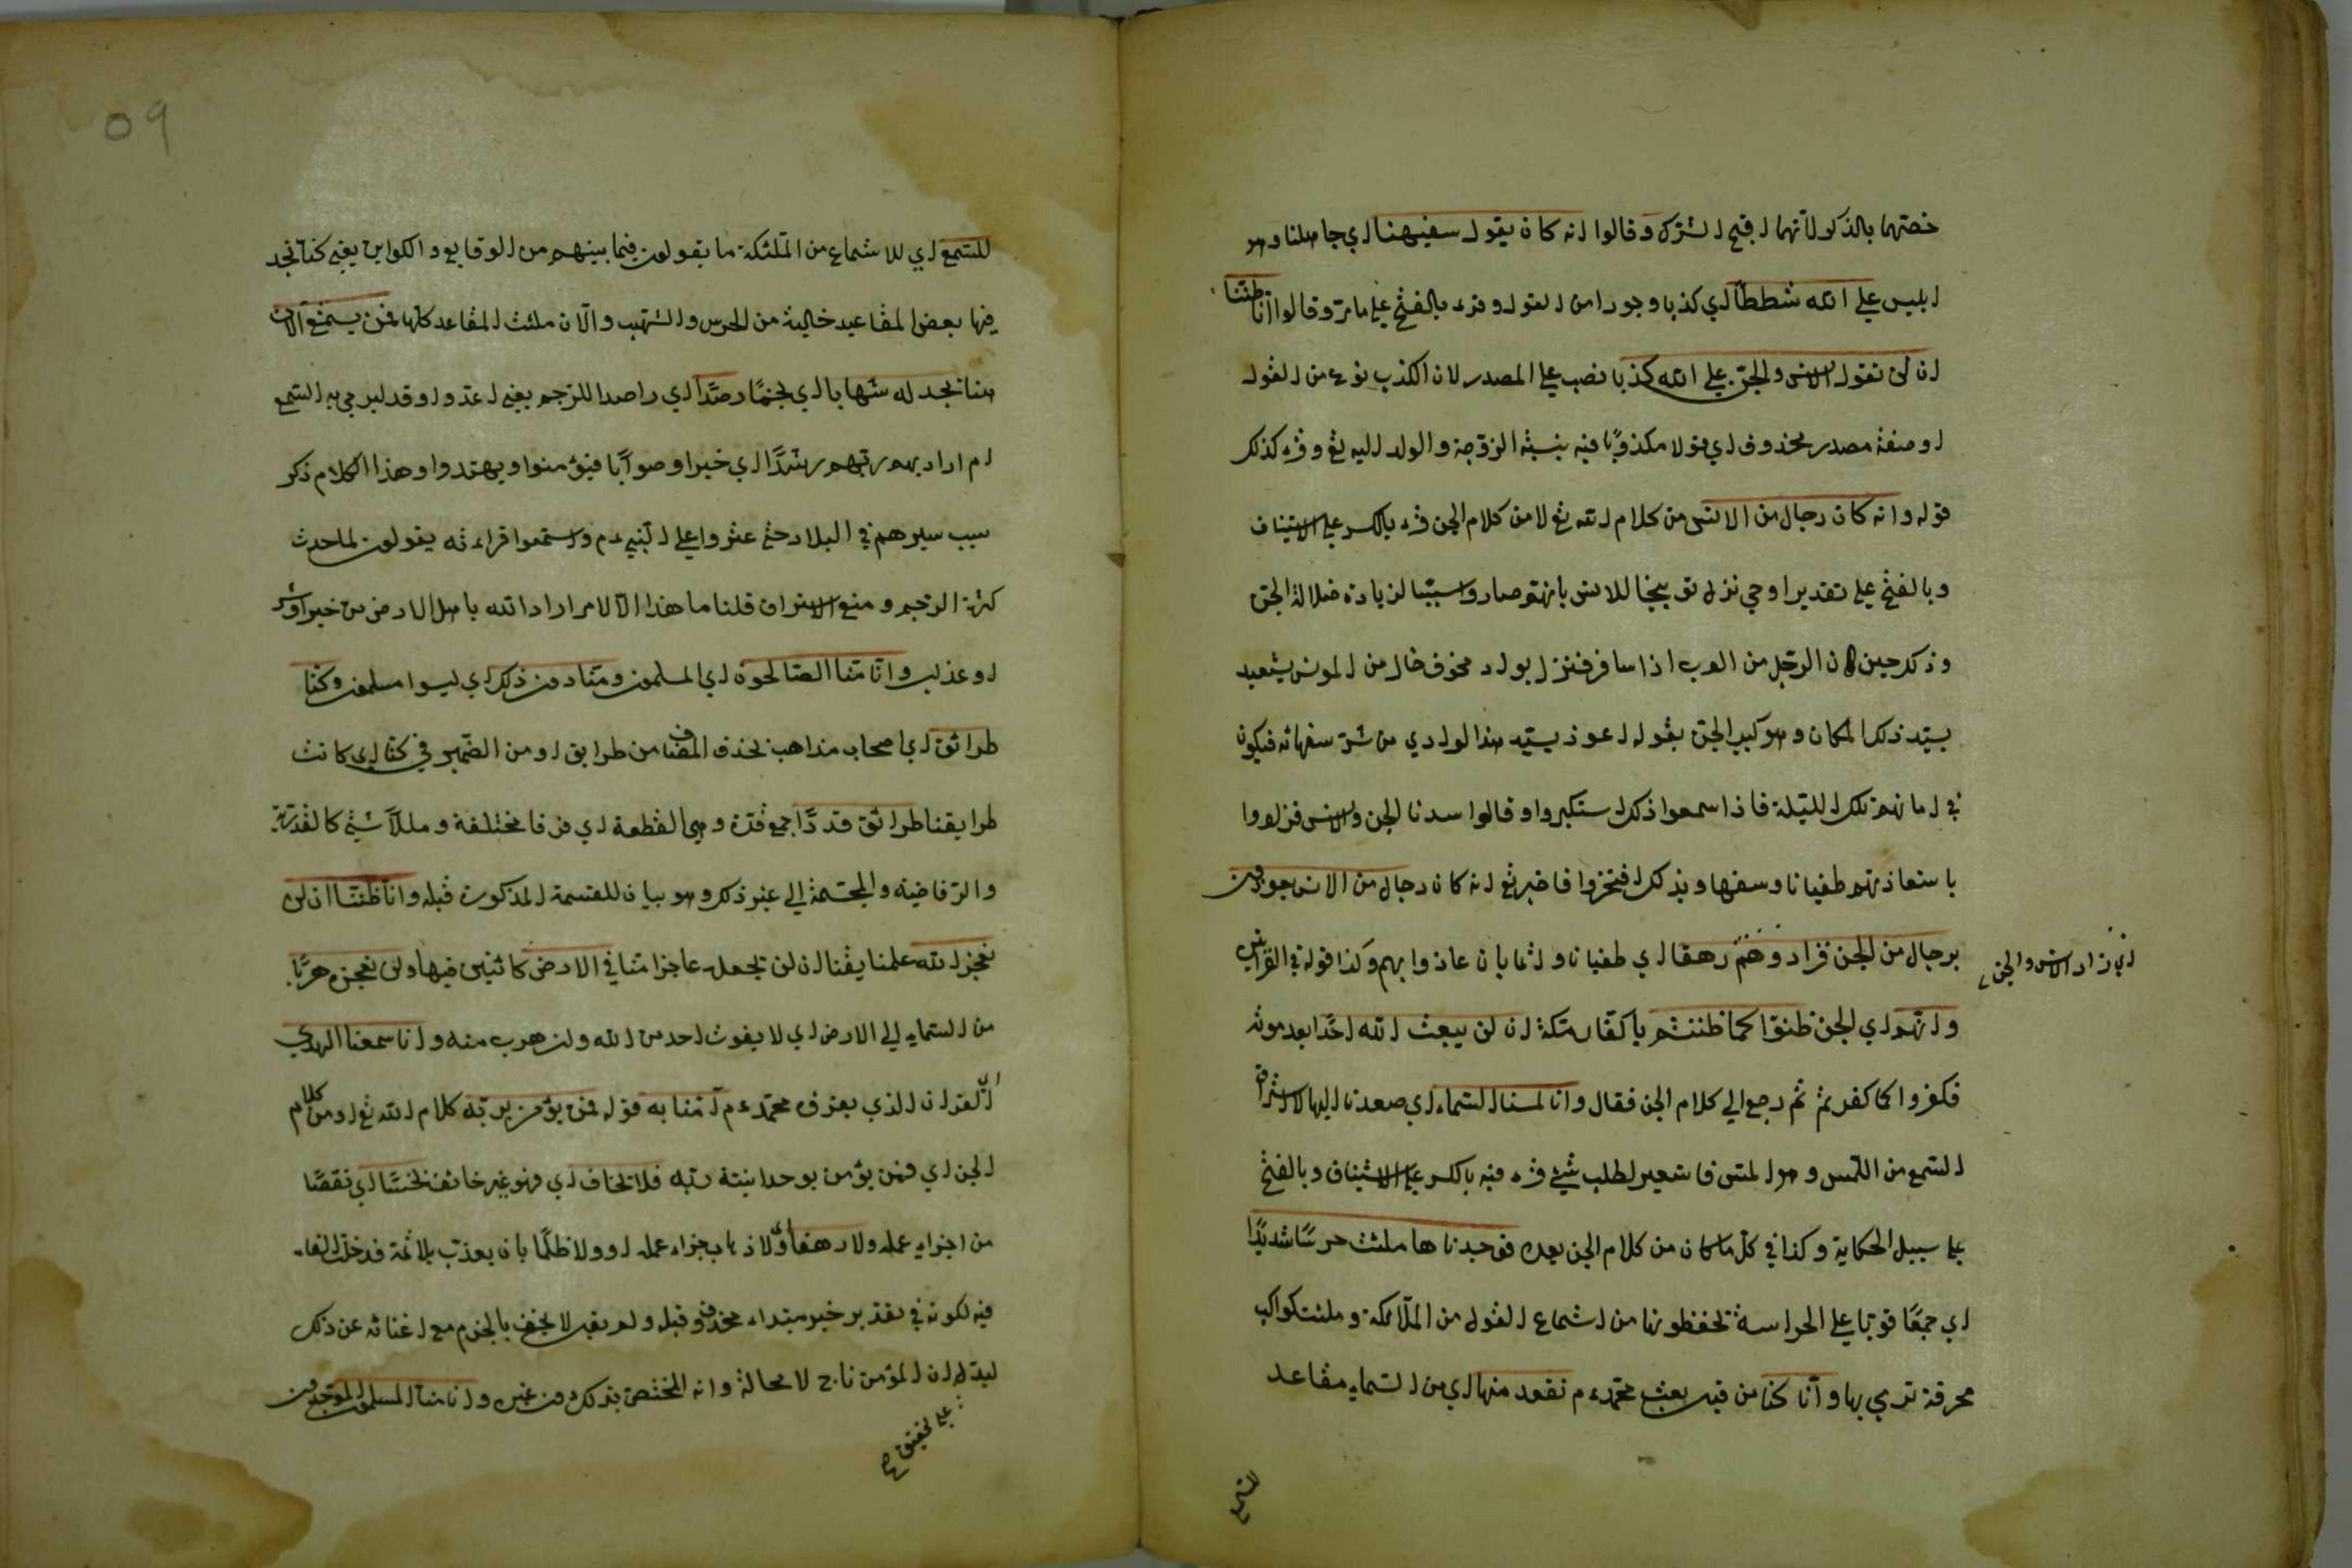 خصتهما بالذكر لأنهما اقبح الشرك وقالوا انه كان يقول سفيهنا اي جاهلنا وهو
ابليس على الله شططا اي كذبا وجورا من القول وقرء بالفتح على ما مر وقالوا انا ظننا
ان لن تقول الانس والجن على الله كذبا نصب على المصدر لان الكذب نوع من القول
او صفة مصدر محذوف اي قولا مكذوبا فيه بنسبة الزوجة والولد اليه تع وقرء كذلك
قوله وانه كان رجال من الانس من كلام الله تع لا من كلام الجن قرء بالكسر على الاستيناف
وبالفتح على تقدير اوحي نزل توبيخا للانس بانهم صاروا سببا لزيادة ضلالة الجن
وذلك حين كان الرجل من العرب اذا سافر فنزل بواد مخوف خال من المونس يستعيد
بسيد ذلك المكان وهو كبير الجن بقوله اعوذ بسيد هذا الوادي من شر سفهائه فيكون
في امانهم تلك الليلة فاذا سمعوا ذلك استكبروا وقالوا سدنا الجن والانس فزادوا
باستعاذتهم طغيانا وسفها وبذلك افتخروا فاخبر تع انه كان رجال من الانس يعوذون
برجال من الجن فزادوهم رهقا اي طغيانا واثما بان عاذوا بهم وكذا قوله في القرآتين
اي زاد الانس والجن
وانهم اي الجن ظنوا كما ظننتم يا كفار مكة ان لن يبعث الله احدا بعد موته
فكفروا كما كفرتم ثم رجع الى كلام الجن فقال وانا لمسنا السماء اي صعدنا اليها لاستراق
السمع من اللمس وهو المس فاستعير لطلب شيء قرء فيه بالكسر على الاستيناف وبالفتح
على سبيل الحكاية وكذا في كل ما كان من كلام الجن بعده فوجدناها ملئت حرسا شديدا
اي جمعا قويا على الحراسة تحفظونها من استماع القول من الملائكة وملئت كواكب
محرقة ترمي بها وانا كنا من قبل بعث محمد ءم نقعد منها اي من السماء مقاعد
للسمع
09
للسمع اي للاستماع من الملئكة ما يقولون فيما بينهم من الوقايع والكواين يعني كنا نجد
فيها بعض المقاعيد خالية من الحرس والشهب والآن ملئت المقاعد كلها فمن يستمع الآن
منا يجد له شهابا اي نجما رصدا اي راصدا للرجم يعني اعد واوقد ليرمى به السمع
ام اراد بهم ربهم رشدا اي خيرا وصوابا فيؤمنوا ويهتدوا وهذا الكلام ذكر
سبب سيرهم في البلاد حتى عثروا على النبي ءم واستمعوا قراءته يقولون لما حدث
كثرة الرجم ومنع الاستراق قلنا ما هذا الا لامر اراد الله باهل الارض من خير او شر
او عذاب وانا منا الصالحون اي المسلمون ومنا دون ذلك اي ليسوا مسلمون وكنا
طرائق اي اصحاب مذاهب بحذف المضاف من طرايق او من الضمير في كنا اي كانت
طرايقنا طرائق قددا جمع قدة وهي القطعة اي فرقا مختلفة ومللا شتى كالقدرية
والرفاضية والمجسمة الى غير ذلك وهو بيان للقسمة المذكورة قبله وانا ظننا ان لن
نعجز الله علمنا يقنا ان لن نجعله عاجزا منا في الارض كائنين فيها ولن نعجزه هربا
من السماء الى الارض اي لا يفوت احد من الله ولن هرب منه وانا سمعنا الهدى
اي القرآن الذي يعرف محمد ءم آمنا به قوله فمن يؤمن بربه كلام الله تع او من كلام
الجن اي فمن يؤمن بوحدانيته ربه فلا يخاف اي فهو غير خائف بخسا اي نقصا
من اجزاء عمله ولا رهقا اي ولا ذهاب جزاء عمله او ولا ظلما بان يعذب بلا ثمة فدخل الفاء
فيه لكونه في تقدير خبر مبتداء محذوف قبله ولم يقل لا يخف بالجزم مع اغنائه عن ذلك
ليدل ان المؤمن ناج لا محالة وانه المختص بذلك دون غيره وانا منا المسلمون الموحدون
على تحقيق صح